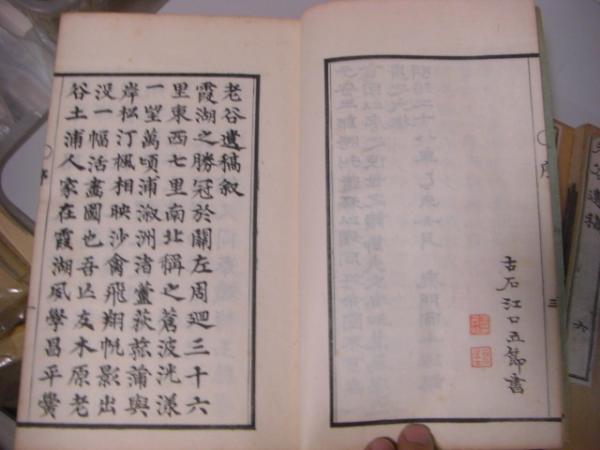 老谷遺稿
序
三
古石江口五節書
老谷遺稿叙
霞湖之勝冠於關左周廻三十六
里東西七里南北稱之蒼波洸漾
一望萬頃浦溆洲渚蘆荻菰蒲與
岸松汀楓相映沙禽飛翔帆影出
沒一幅活畫圖也吾亡友木原老
谷土浦人家在霞湖夙學昌平黌
序
一